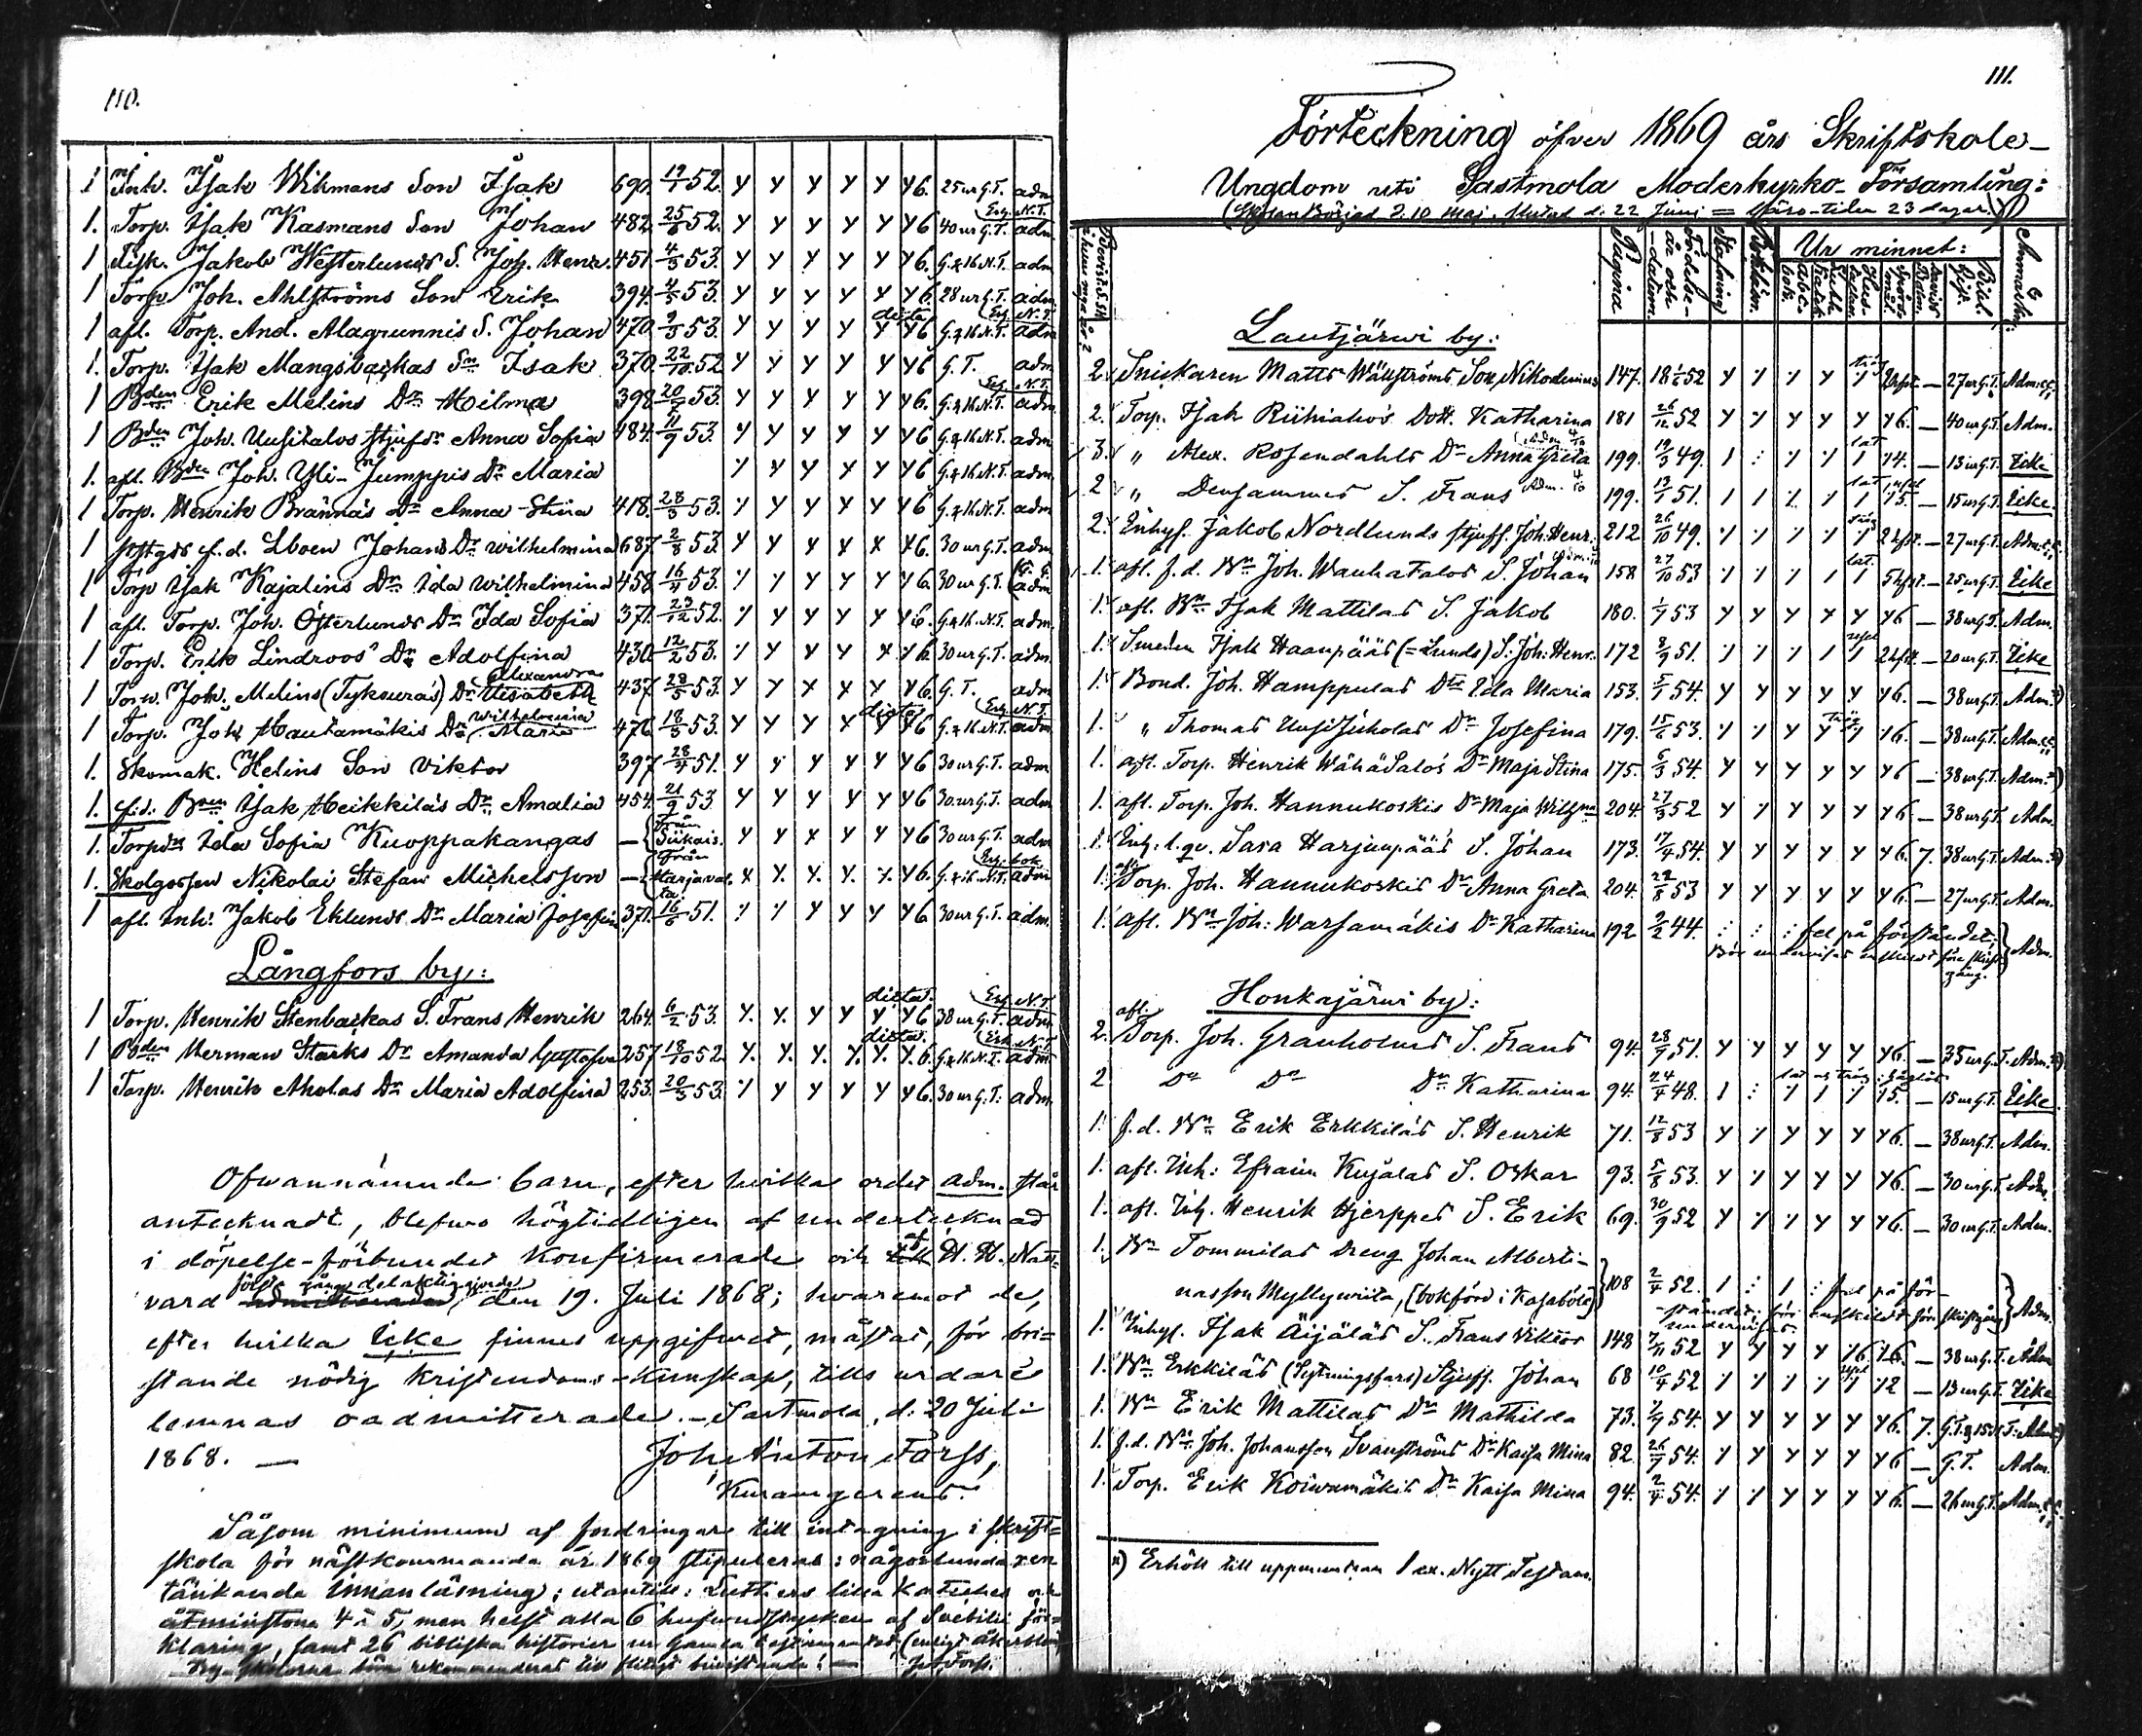 110.
1 Inh. Isak Wikmans Son Isak 690. 19/1 52. y y y y y y 6. 25 ur G.T. adm
1. Torp. Isak Kasmans Son Johan 482. 25/6 52. y y y y y y 6 40 ur G.T. adm.
1 Fisk. Jakob Westerlunds S. Joh. Henr. 451. 4/3 53. y y y y y y 6. G. & 16 N.T. adm
1 Torp Joh. Ahlströms Son Erik 394. 4/5 53. y y y y y y 6. 28 ur G.T. adm
1 afl. Torp. And. Alagrunnis S. Johan 470. 9/3 53. y y y y y y 6 G. & 16 N.T. adm
1. Torp. Isak Mangsbackas Sn Isak 370. 22/10 52 y y y y y y 6 G. T. adm
1 Bden Erik Melins Dr Hilma 398 20/ 53. y y y y y y 6. G. & 16 N.T. adm
1 Bden Joh. Uusitalos stjufdr Anna Sofia 484. 11/9 53. y y y y y y 6 G. & 16 N.T. adm
1. afl. Bden Joh. Yli-Jumppis Dr Maria y y y y y y 6 G. & 16 N.T. adm
1 Torp. Henrik Brännäs Dr Anna Stina 418. 28/3 53. y y y y y y 6 G. & 16 N.T. adm
1 f.d. Johans Dr Wilhelmina 687. 2/8 53 y y y y x x 6. 30 ur G.T. adm
1 Torp Isak Kajalins Dr Ida Wilhelmina 458. 16/4 53. y y y y y y 6. 30 ur G.T. adm
1 afl. Torp. Joh. Österlunds Dr Ida Sofia 371. 23/12 52. y y y y y y 6. G. & 16 N.T. adm.
1 Torp. Erik Lindroos' Dr Adolfina 430. 12/2 53. y y y y x y 6 30 ur G.T. adm.
Alexandra
1 Torp. Joh. Melins (Tykneräs) Dr Elisabeth 437. 28/5 53. y y x x y y 6. G. T. adm
Wilhelmina
1 Torp. Joh. Hautamäkis Dr Maria 476. 18/3 53. y y y x y y 6 G. & 16 N.T. adm
1. Skomak. Helins Son Viktor 397 28/7 51. y y y y y y 6 30 ur G.T. adm
1. f.d. Bden Isak Heikkiläs Dr Amalia 454. 21/9 53. y y y y y y 6 30 ur G.T. adm
1. Torpdr Ida Sofia Kuoppakangas — Från Siikais. y y x y y y 6 30 ur G.T. adm
1. Skolgossen Nikolai Stefan Michelsson — Från Harjavalta x y. y. y. y. y 6. G. & 16 N.T. adm
1 afl. Inh: Jakob Eklunds Dr Maria Josefina 371. 16/6 51. y y y y y y 6 30 ur G.T. adm.
Långfors by:
1 Torp. Henrik Stenbackas S. Frans Henrik 264. 6/2 53. y. y. y y y y 6 38 ur G.T. adm
1 Bden Herman Starks Dr Amanda Gustafva 257 18/10 52. y. y. y. y. y. y. 6. G. & 16 N.T. adm
1 Torp. Henrik Aholas Dr Maria Adolfina 253. 20/3 53. y y y y y y 6. 30 ur G.T: adm.
Ofvannämnde barn, efter hvilka ordet adm. står
antecknadt, blefvo högtidligen af undertecknad
i döpelse-förbundet Konfirmerade och af H. H. Natt-
vard första gång delaktiggjorde, den 19. Juli 1868; hvaremot de,
efter hvilka Icke finnes uppgifvet, måstat, för bri-
stande nödig kristendoms-kunskap, tills vidare
lemnas oadmitterade. — Sastmola, d: 20 Juli
1868. —
Joh. Anton Forss,
Kuramgerens.
Såsom minimum af fordringar till intagning i skrift-
skola för nästkommande år 1869 stipuleras: någorlunda ren
tänkande Innanläsning; utantill: Luthers lilla Kateches och
åtminstone 4 á 5, men helst alla 6 hufvudstycken af Svebilii för-
klaring, samt 26 bibliska historier ur Gamla testamentet (enligt Åkerblom)
rekommenderas till flitigt Forss.
111.
Förteckning öfver 1869 års Skriftskole-
Ungdom uti Sastmola Moderkyrko-Församling:
(Skolan Börjad d. 10 Maj, slutad d. 22 Juni = läro-tiden 23 dagar.)
Pagina
Födelse-år och -datum.
Ur minnet:
Abc-bok.
Bibl.
Anmärkn:
Lautjärwi by:
2. Snickaren Matts Wällströms Son Nikodemus 147. 18 1/6 52 y y y y y — 27 ur G.T. Adm:
2. Torp. Isak Riihiahos Dott. Katharina 181 26/12 52 y y y y y y 6. — 40 ur G.T. Adm.
3. „ Alex. Rosendahls Dr Anna Greta 199. 19/3 49. 1 : y y 1 y 4. — 13 ur G.T. Icke
2 „ Densammes S. Frans 199. 19/1 51. 1 1 y y 1 y 5. — 15 ur G.T. Icke.
2. Inhys. Jakob Nordlunds stjufs. Joh. Henr. 212 26/10 49. y y y y y — 27 ur G.T. Adm:
1. afl. f.d. Bn Joh. Wanhatalos S. Johan 158 27/10 53 y y y 1 1 — 25 ur G.T. Icke
1. afl. Bn Isak Mattilas S. Jakob 180. 1/7 53 y y y y y y 6 — 38 ur G.T. Adm.
1. Smeden Isak Haanpääs (=Lunds) S. Joh: Henr. 172 8/9 51. y y y 1 1 — 20 ur G.T. Icke
1. Bond. Joh. Hamppulas Dtr Ida Maria 153. 5/1 54. y y y y y y 6. — 38 ur G.T. Adm. *)
1. „ Thomas Uusijuholas Dr Josefina 179. 15/6 53. y y y y y y 6. — 38 ur G.T. Adm.
1. afl. Torp. Henrik WähäSalos Dr Maja Stina 175. 6/3 54. y y y y y y 6 — 38 ur G.T. Adm. *)
1. afl. Torp. Joh. Hannukoskis Dr Maja Wilhna 204. 27/3 52 y y y y y y 6 — 38 ur G.T. Adm.
1. Inh: Sara Harjunpääs S. Johan 173. 17/4 54. y y y y y y 6. 7. 38 ur G.T. Adm. *)
1. afl. Torp. Joh. Hannukoskis Dr Anna Greta 204. 22/8 53 y y y y y y 6. — 27 ur G.T. Adm.
1. afl. Bn Joh: Warsamäkis Dr Katharina 192 2/2 44. : : : fel på förståndet: Adm.
Honkajärwi by:
2. afl. Torp. Joh. Granholms S. Frans 94. 28/9 51. y y y y y y 6. — 35 ur G.T. Adm. *)
2 Dn Dn Dr Katharina 94. 24/4 48. 1 : y 1 y y 5. — 15 ur G.T. Icke.
1. f.d. Bn Erik Erkkiläs S. Henrik 71. 12/8 53 y y y y y y 6. — 38 ur G.T. Adm.
1. afl. Inh: Efraim Kujalas S. Oskar 93. 5/8 53. y y y y y y 6. — 30 ur G.T. Adm.
1. afl. Inh. Henrik Hjerppes S. Erik 69. 30/9 52 y y y y y y 6. — 30 ur G.T. Adm.
1. Bn Tommilas Dreng Johan Alberti-
nasson Myllyviita, (bokförd i Kasaböle) 108 2/4 52. 1 : 1 : fel på för-
ståndet: Adm.
1. Inhys. Isak Äijäläs S. Frans Viktor 148 7/11 52 y y y y y 6. y 6. — 38 ur G.T. Adm
1. Bn Erkkiläs Stjufs. Johan 68 10/4 52 y y y y y y 2 — 13 ur G.T. Icke
1. Bn Erik Mattilas Dr Mathilda 73. 2/9 54. y y y y y y 6. 7. Adm *)
1. f.d. Bn Joh. Johansson Svanströms Dr Kaisa Mina 82. 26/7 54. y y y y y y 6 — G.T. Adm.
1. Torp. Erik Koivumäkis Dr Kaisa Mina 94. 2/4 54. y y y y y y 6. — 26 ur G.T. Adm.
*) Erhöll till uppmuntran 1 ex. Nytt Testam.